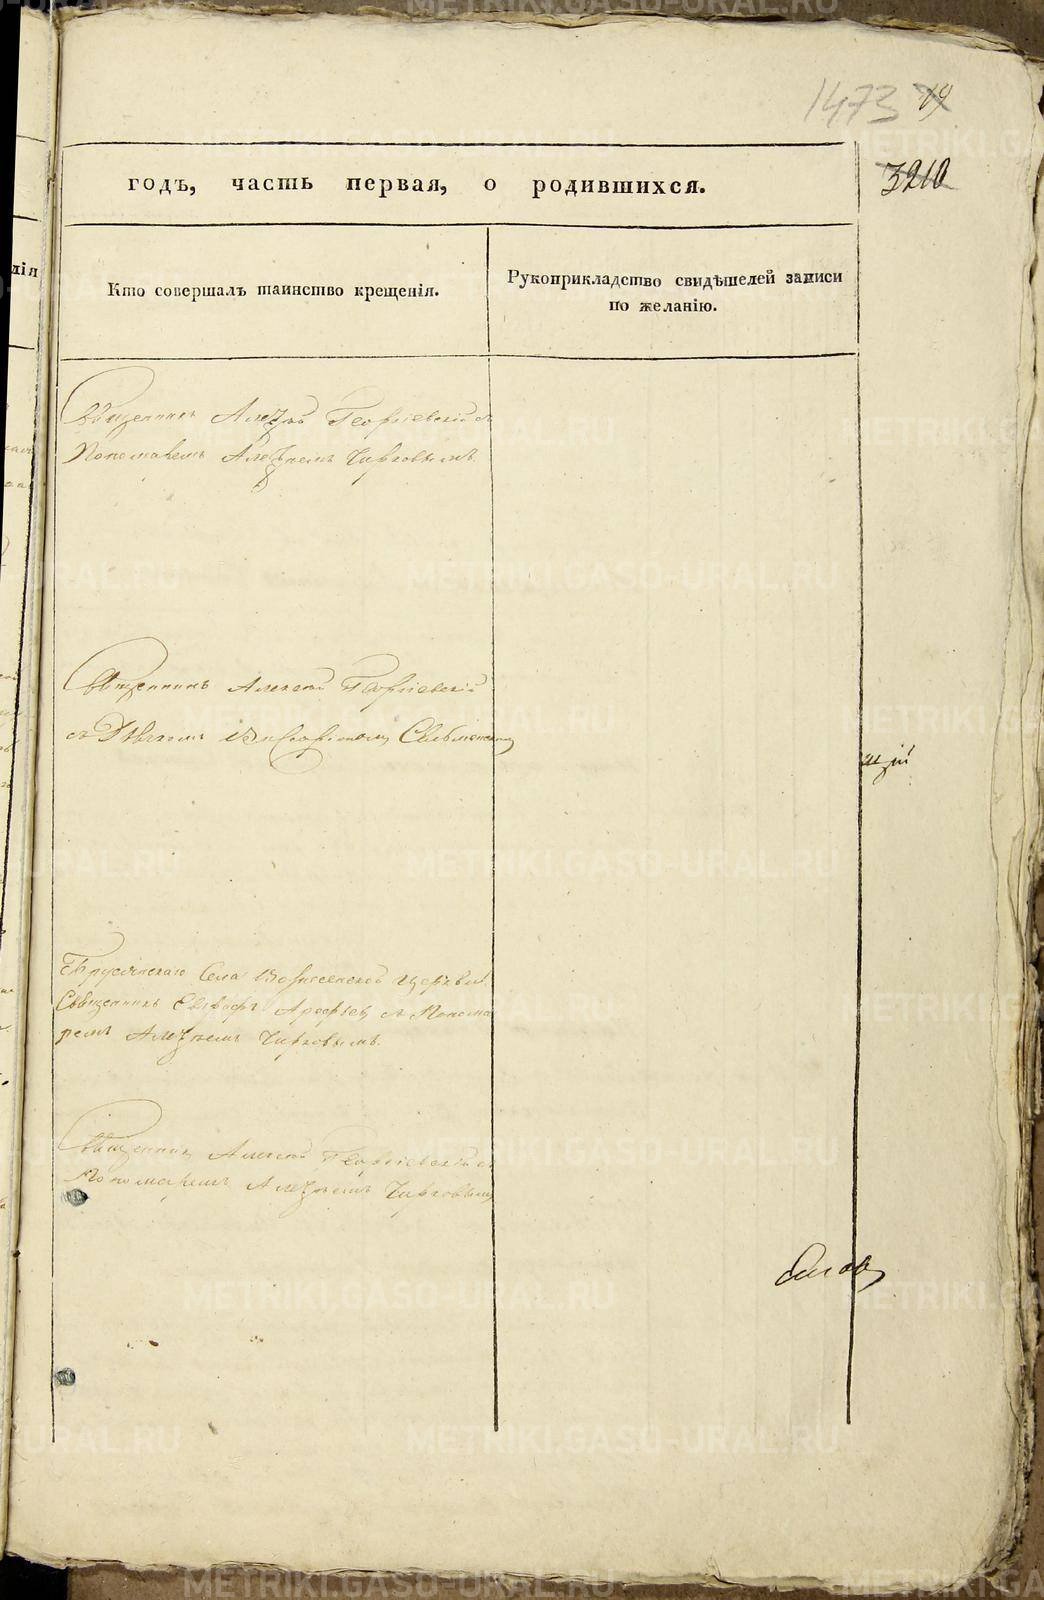 1473 19
3210
годъ, часть первая, о родившихся.
Кто совершалъ таинство крещенія.
Рукоприкладство свидѣтелей записи
по желанію.
Священникъ Алексѣй Георгіевскій съ
Пономаремъ Алексѣемъ Чирковымъ.
Священникъ Алексей Георгіевскій
съ Дьякомъ
щій
Брусянскаго Села Вознесенской церкви
Священникъ Евграфъ Арефьев съ Понома
ремъ Алексѣемъ Чирковымъ.
Священник Алексей Георгіевскій съ
Пономаремъ Алексѣемъ Чирковым
METRIKI.GASO-URAL.RU